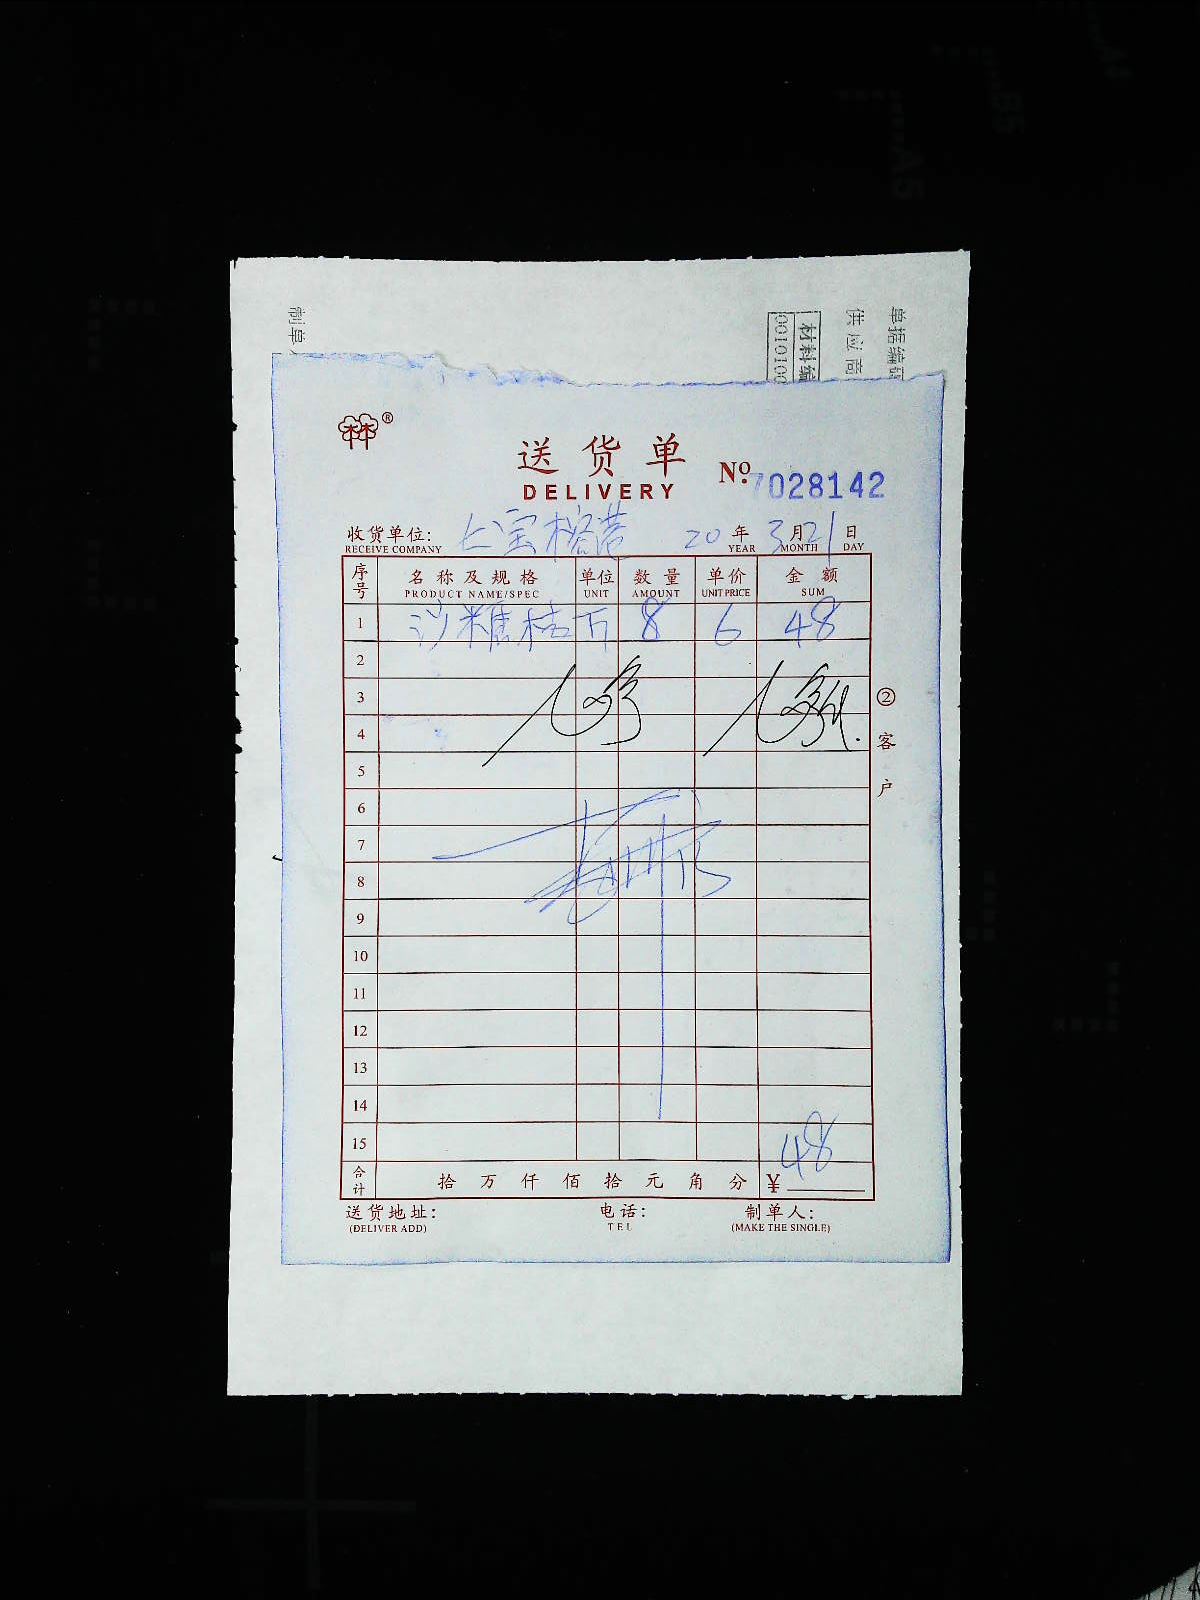 制单人
单据编码
供应商
材料编
0010100
林®
送货单
DELIVERY
No. 7028142
收货单位: 七宝榕港 20年 3月21日
RECEIVE COMPANY YEAR MONTH DAY
序号 名称及规格 单位 数量 单价 金额
PRODUCT NAME/SPEC UNIT AMOUNT UNIT PRICE SUM
1 沙糖桔 斤 8 6 48
2
3
4
5
6
7
8
9
10
11
12
13
14
15
② 客户
48
合计 拾 万 仟 佰 拾 元 角 分 ¥
送货地址: 电话: 制单人:
(DELIVER ADD) TEL (MAKE THE SINGLE)
A4
B5
A5